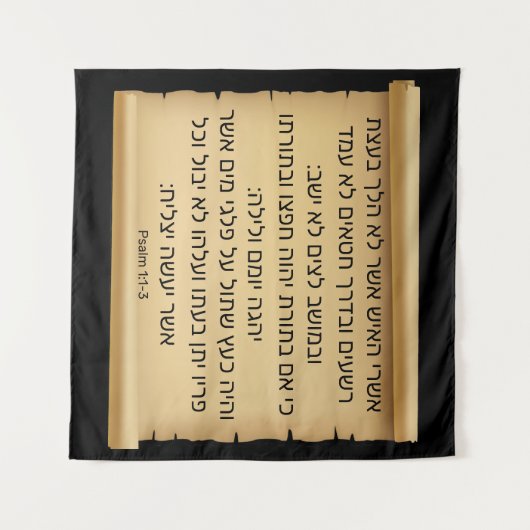 אשרי האיש אשר לא הלך בעצת
רשעים ובדרך חטאים לא עמד
ובמושב לצים לא ישב:
כי אם בתורת יהוה חפצו ובתורתו
יהגה יומם ולילה:
והיה כעץ שתול על פלגי מים אשר
פריו יתן בעתו ועלהו לא יבול וכל
אשר יעשה יצליח:
Psalm 1:1-3